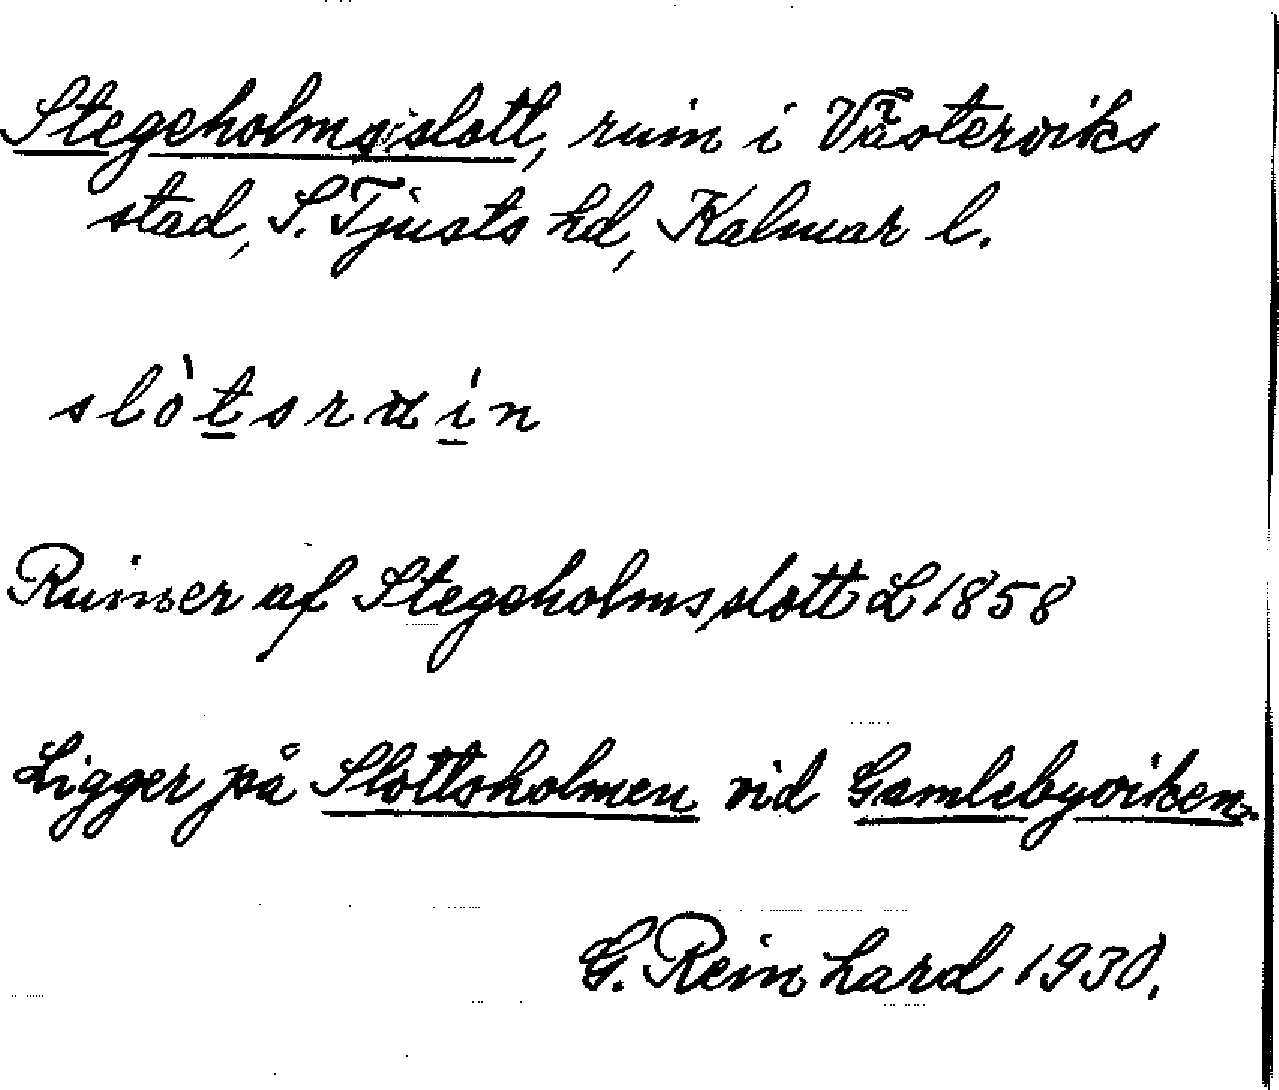 Stegeholms slott, ruin i Västerviks
stad, S. Tjusts hd, Kalmar l.
slòtsruín
Ruiner af Stegeholms slott L 1858
Ligger på Slottsholmen vid Gamlebyviken.
G. Reinhard 1930.